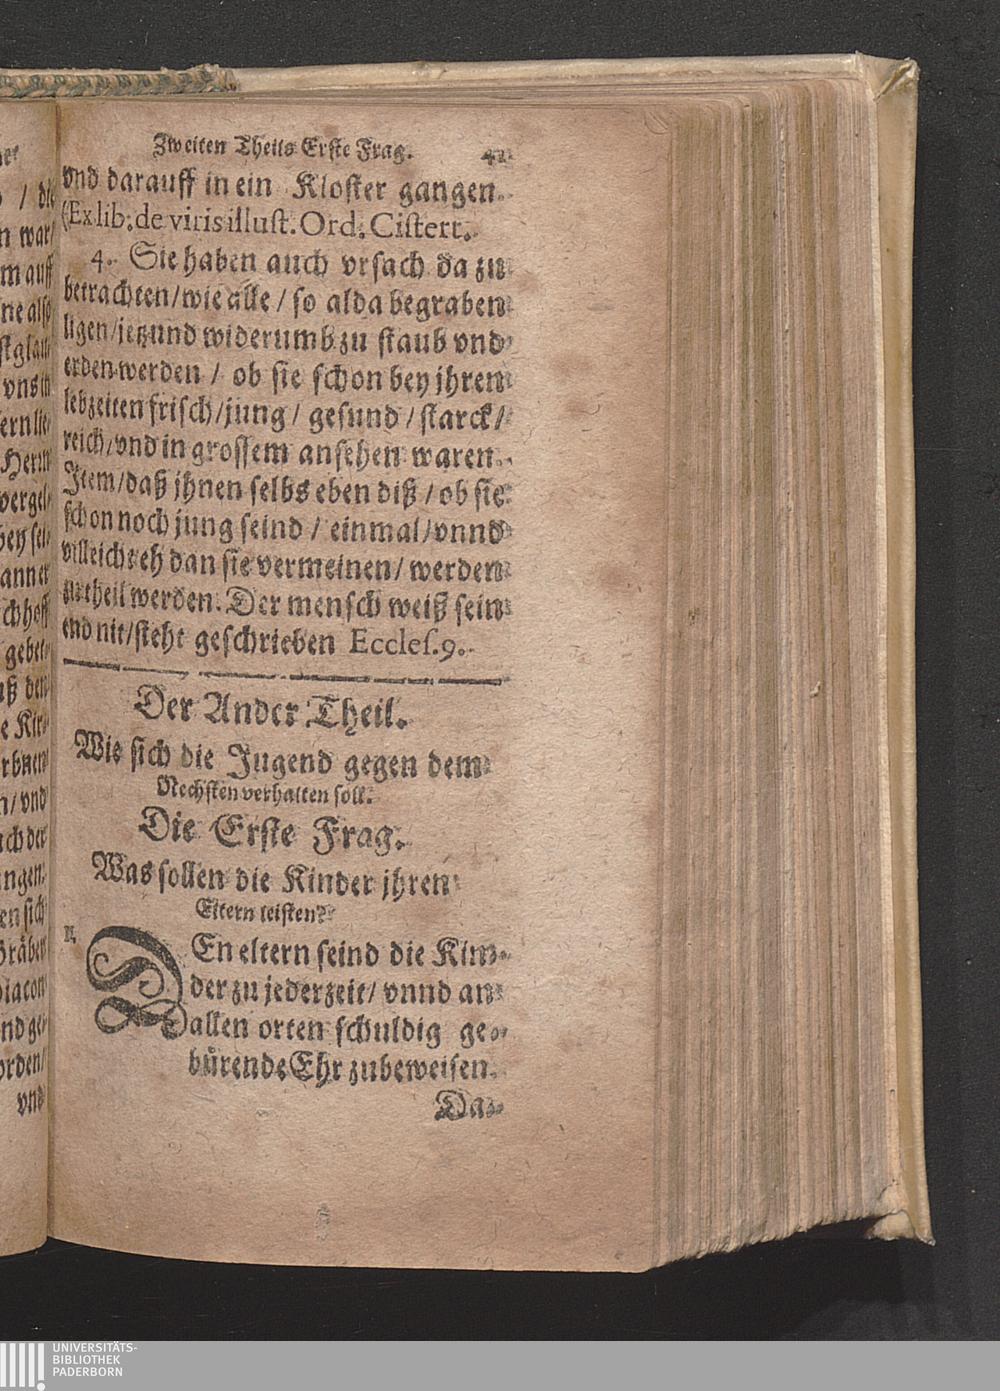 Zweiten Theils Erste Frag. 42
vnd darauff in ein Kloster gangen.
(Ex lib. de viris illust. Ord. Cisterr.
4. Sie haben auch vrsach da zu
betrachten/wie alle/ so alda begraben
ligen/jetzund widerumb zu staub vnd
erden werden / ob sie schon bey jhren
lebzeiten frisch/jung/ gesund/starck/
reich/vnd in grossem ansehen waren.
Item/daß jhnen selbs eben diß/ob sie
schon noch jung seind / einmal/vnnd
villeicht eh dan sie vermeinen/ werden
zu theil werden. Der mensch weiß sein
end nit/steht geschrieben Eccles.9.
Der Ander Theil.
Wie sich die Jugend gegen dem
Nechsten verhalten soll.
Die Erste Frag.
Was sollen die Kinder jhren
Eltern leisten?
DEn eltern seind die Kin-
der zu jederzeit/ vnnd an
allen orten schuldig ge-
bürende Ehr zubeweisen.
Da-
UNIVERSITÄTS-
BIBLIOTHEK
PADERBORN